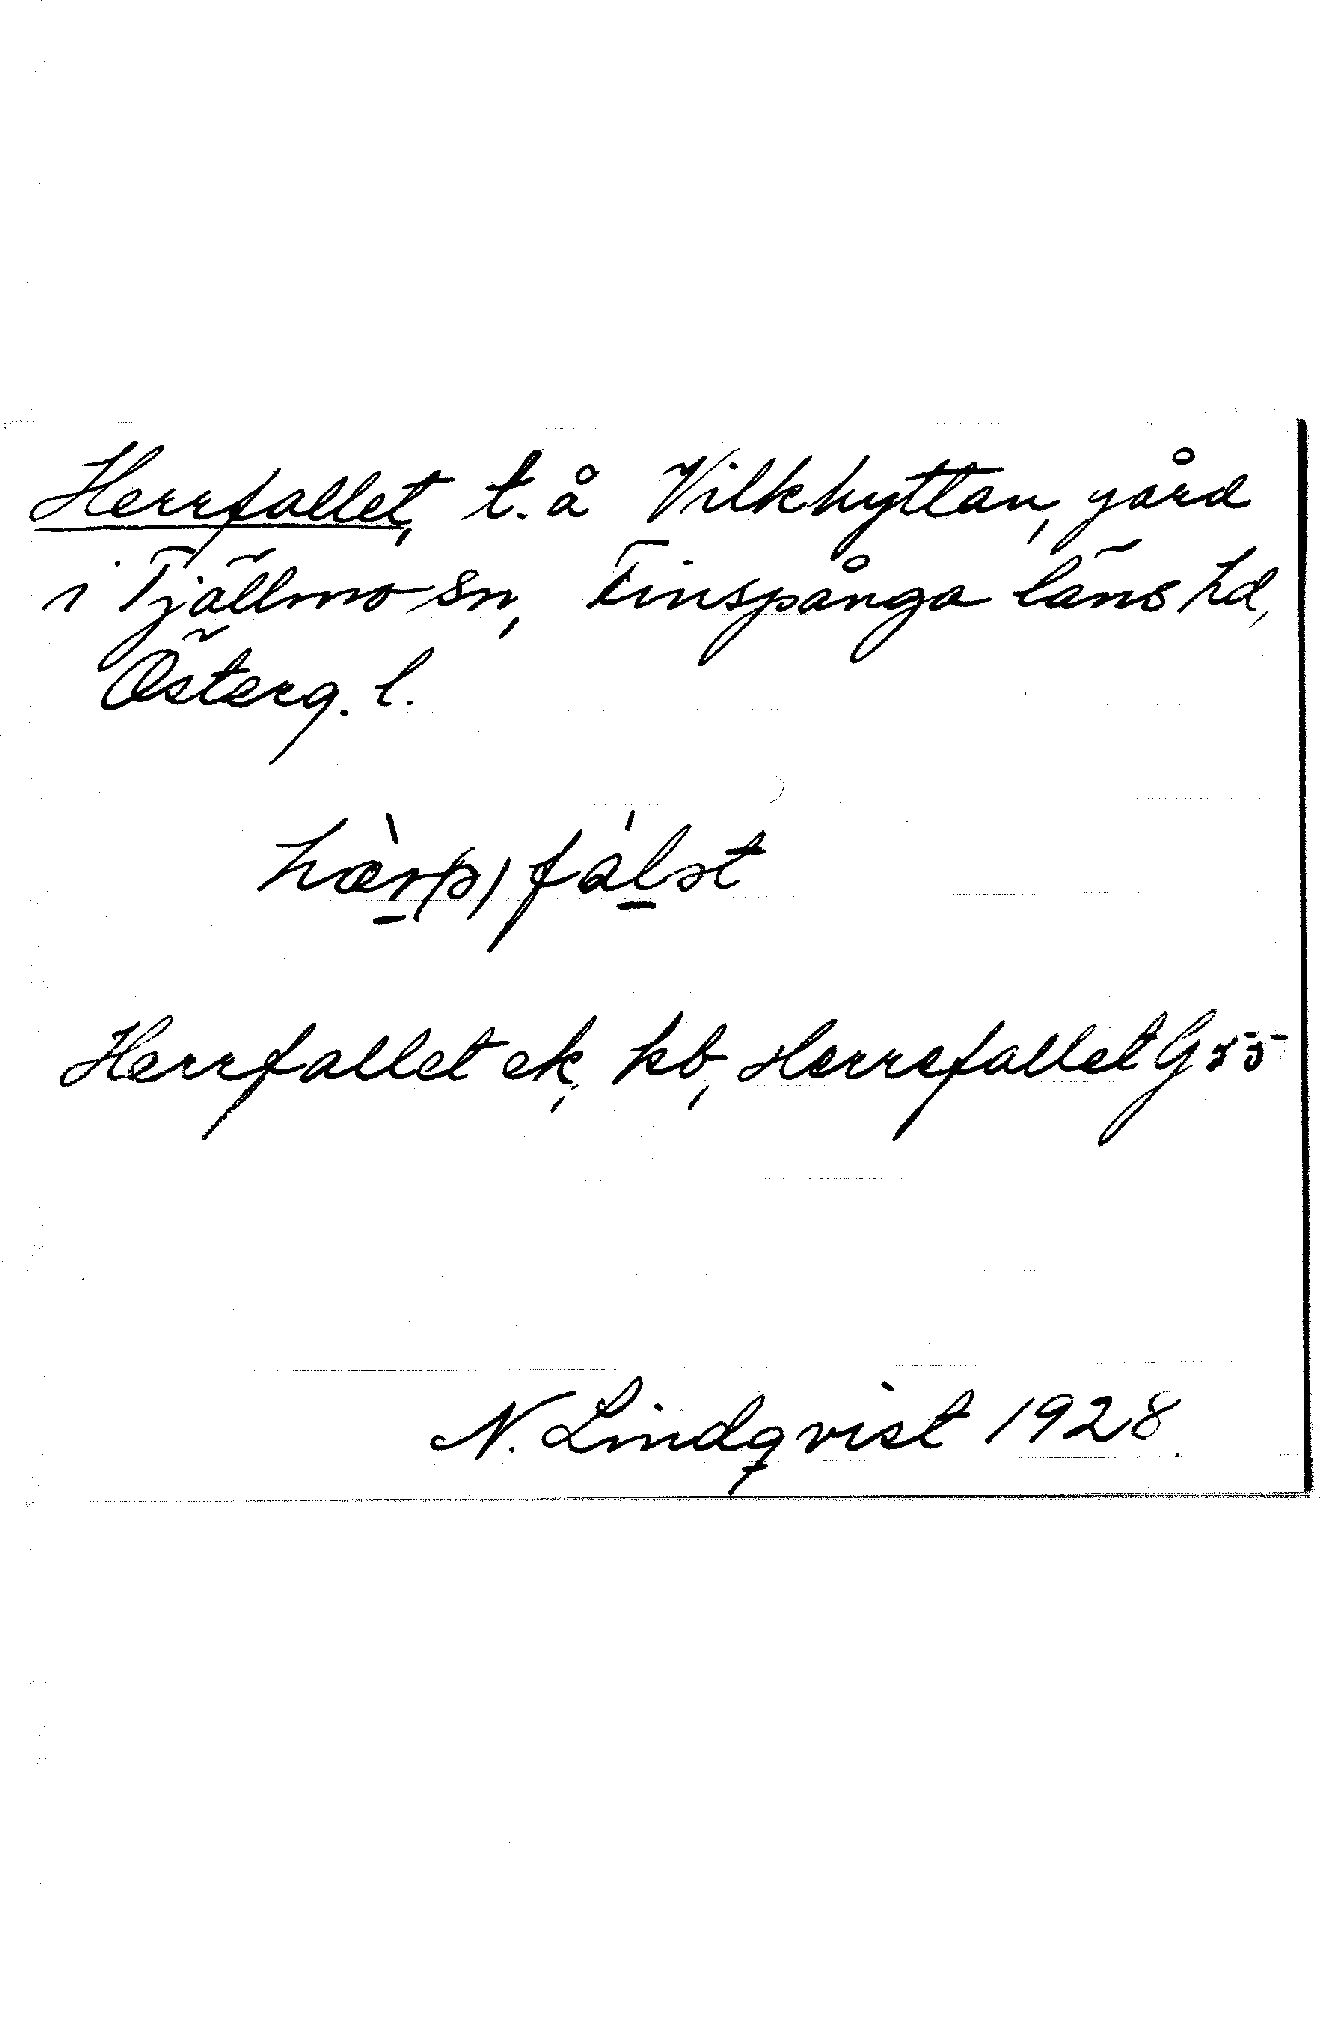 Herrfallet, t. å Vilkhyttan, gård
i Tjällmo sn, Finspånga läns hd,
Österg. l.
hær(ə)fálət
Herrfallet ek, kb, Herrefallet G 55
N. Lindqvist 1928.